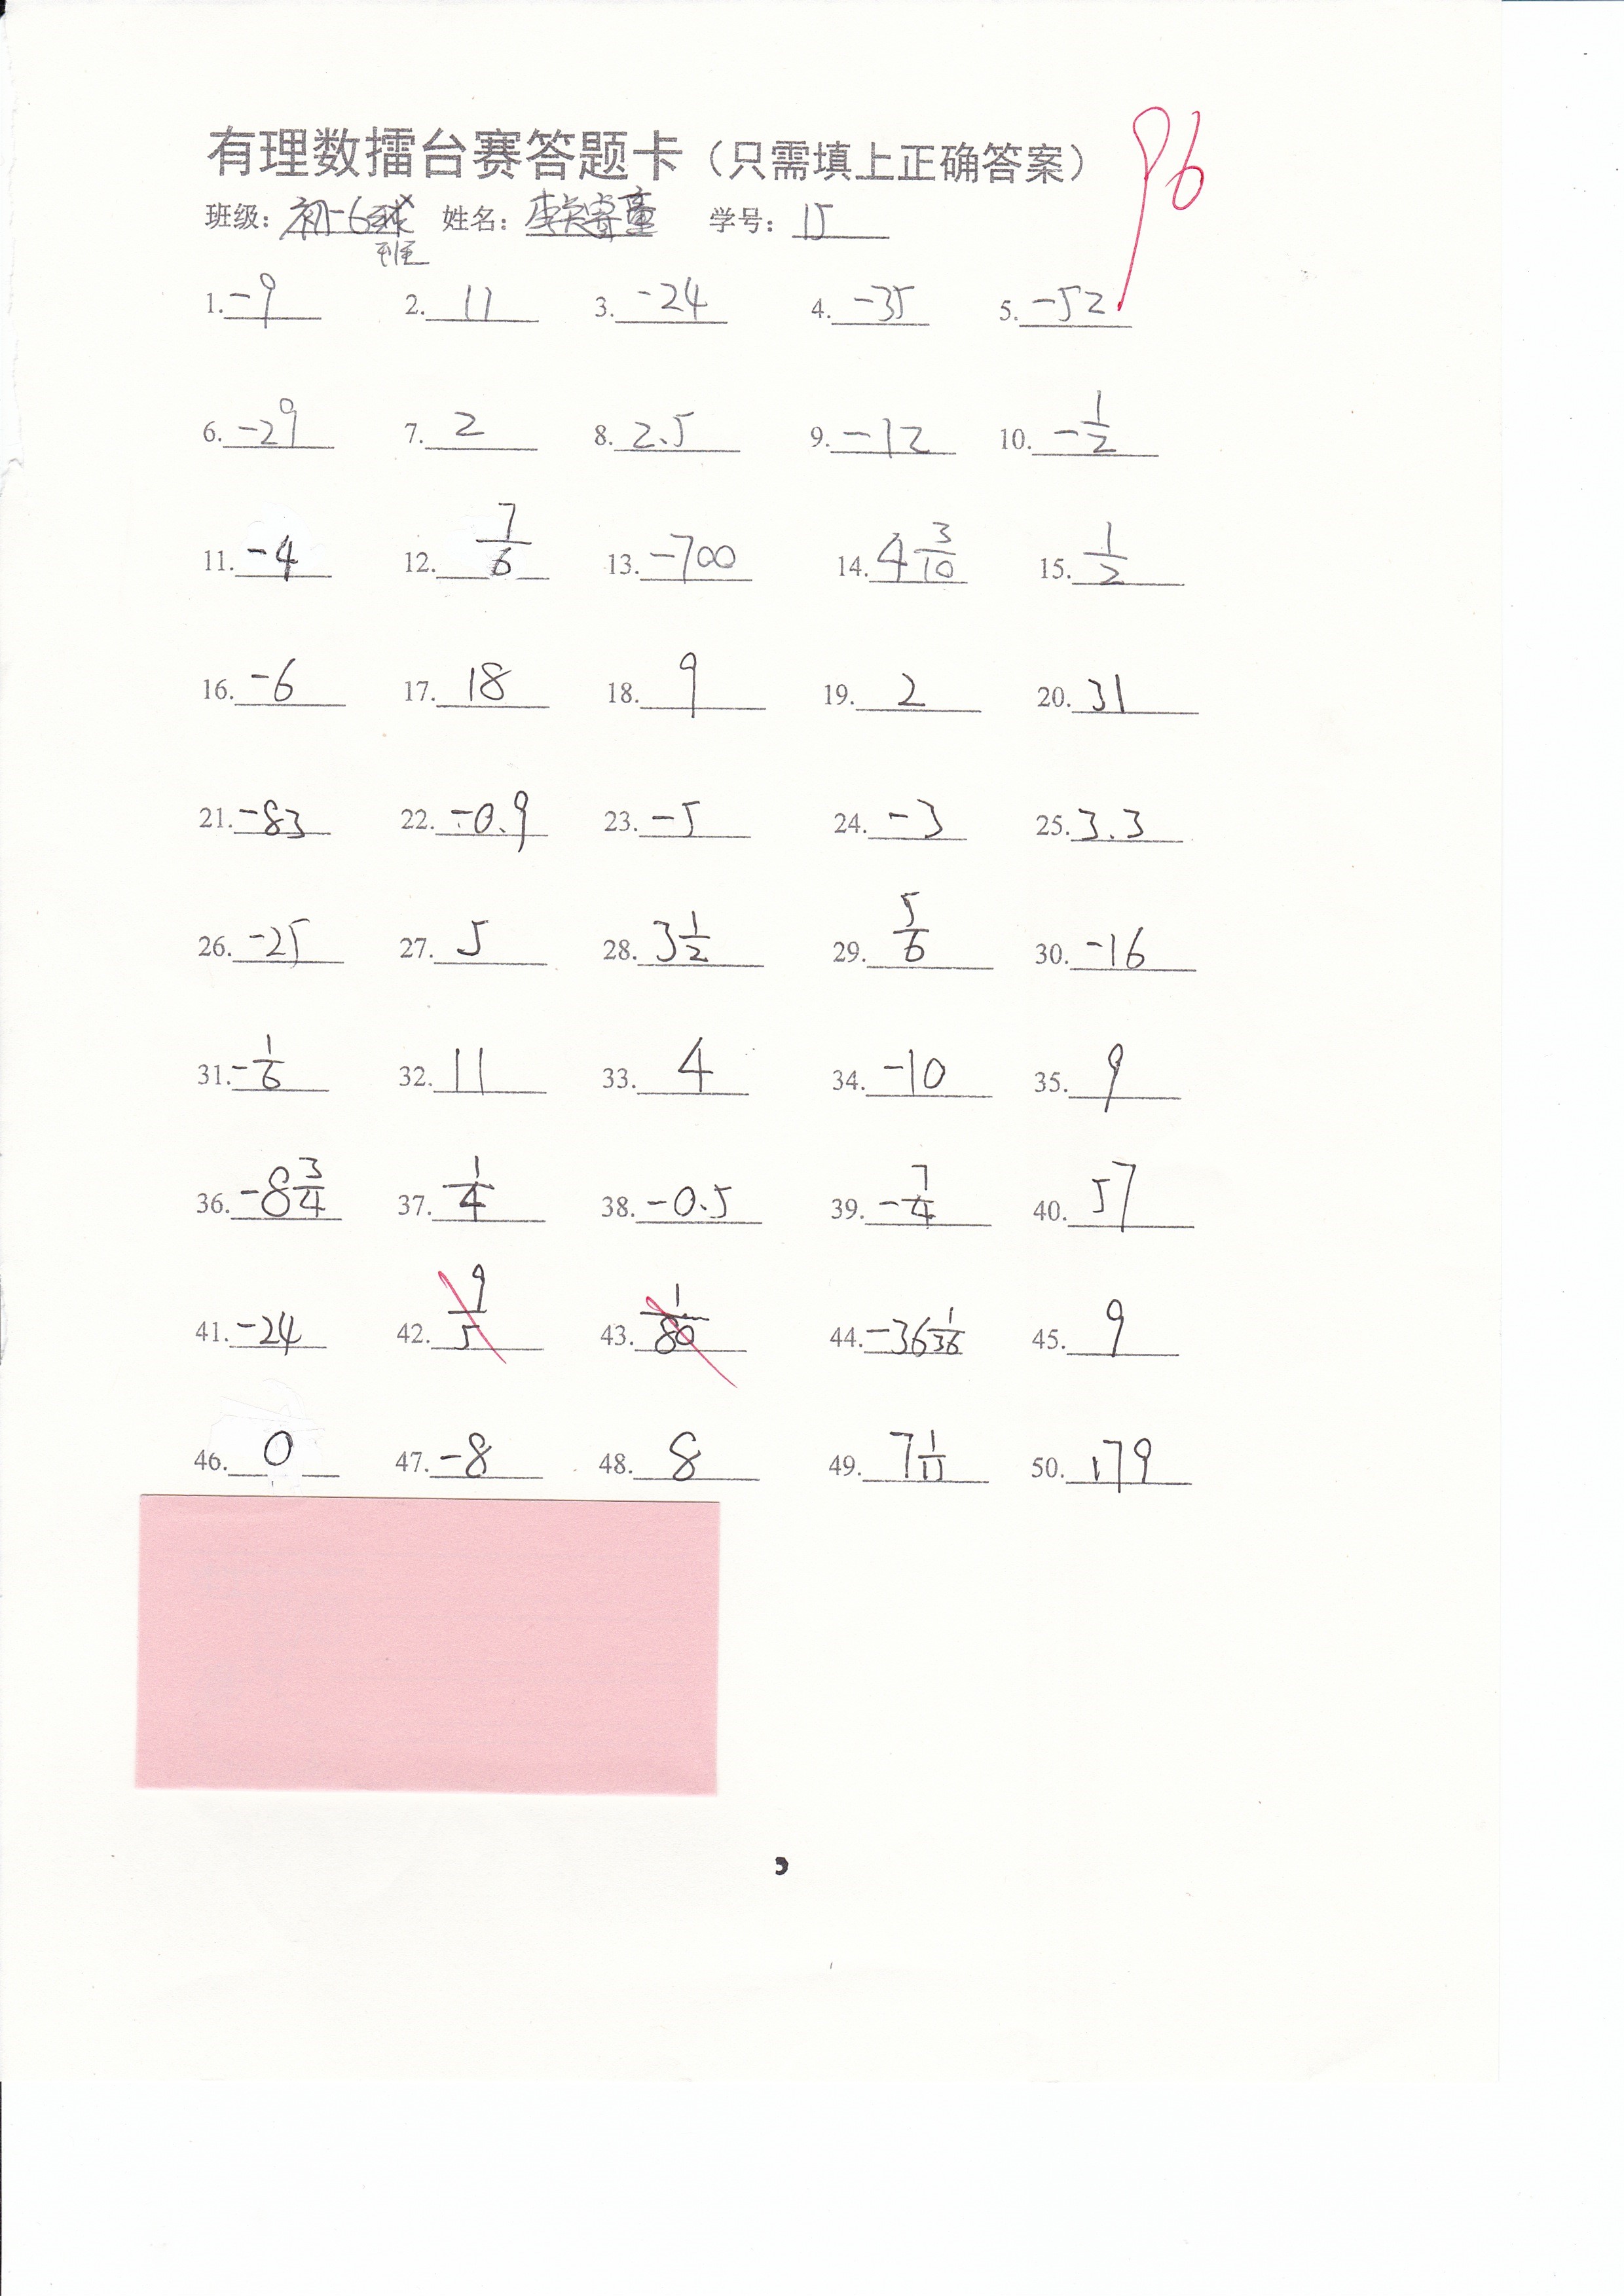 有理数擂台赛答题卡（只需填上正确答案） 96
班级：初一6 姓名： 学号：15
班
1. -9 2. 11 3. -24 4. -35 5. -52
6. -29 7. 2 8. 2.5 9. -12 10. -1/2
11. -4 12. 7/6 13. -700 14. 4 3/10 15. 1/2
16. -6 17. 18 18. 9 19. 2 20. 31
21. -83 22. -0.9 23. -5 24. -3 25. 3.3
26. -25 27. 5 28. 3 1/2 29. 5/6 30. -16
31. -1/6 32. 11 33. 4 34. -10 35. 9
36. -8 3/4 37. 1/4 38. -0.5 39. -7/4 40. 57
41. -24 42. 9/5 43. 1/80 44. -36 1/36 45. 9
46. 0 47. -8 48. 8 49. 7 1/11 50. 179